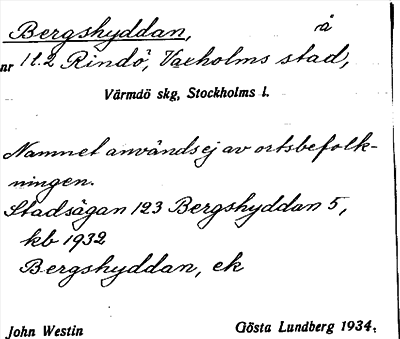 Bergshyddan, å
nr 1 l. 2 Rindö, Vaxholms stad,
Värmdö skg, Stockholms l.
Namnet användes ej av ortsbefolk-
ningen.
Stadsägan 123 Bergshyddan 5,
kb 1932
Bergshyddan, ek
John Westin Gösta Lundberg 1934.